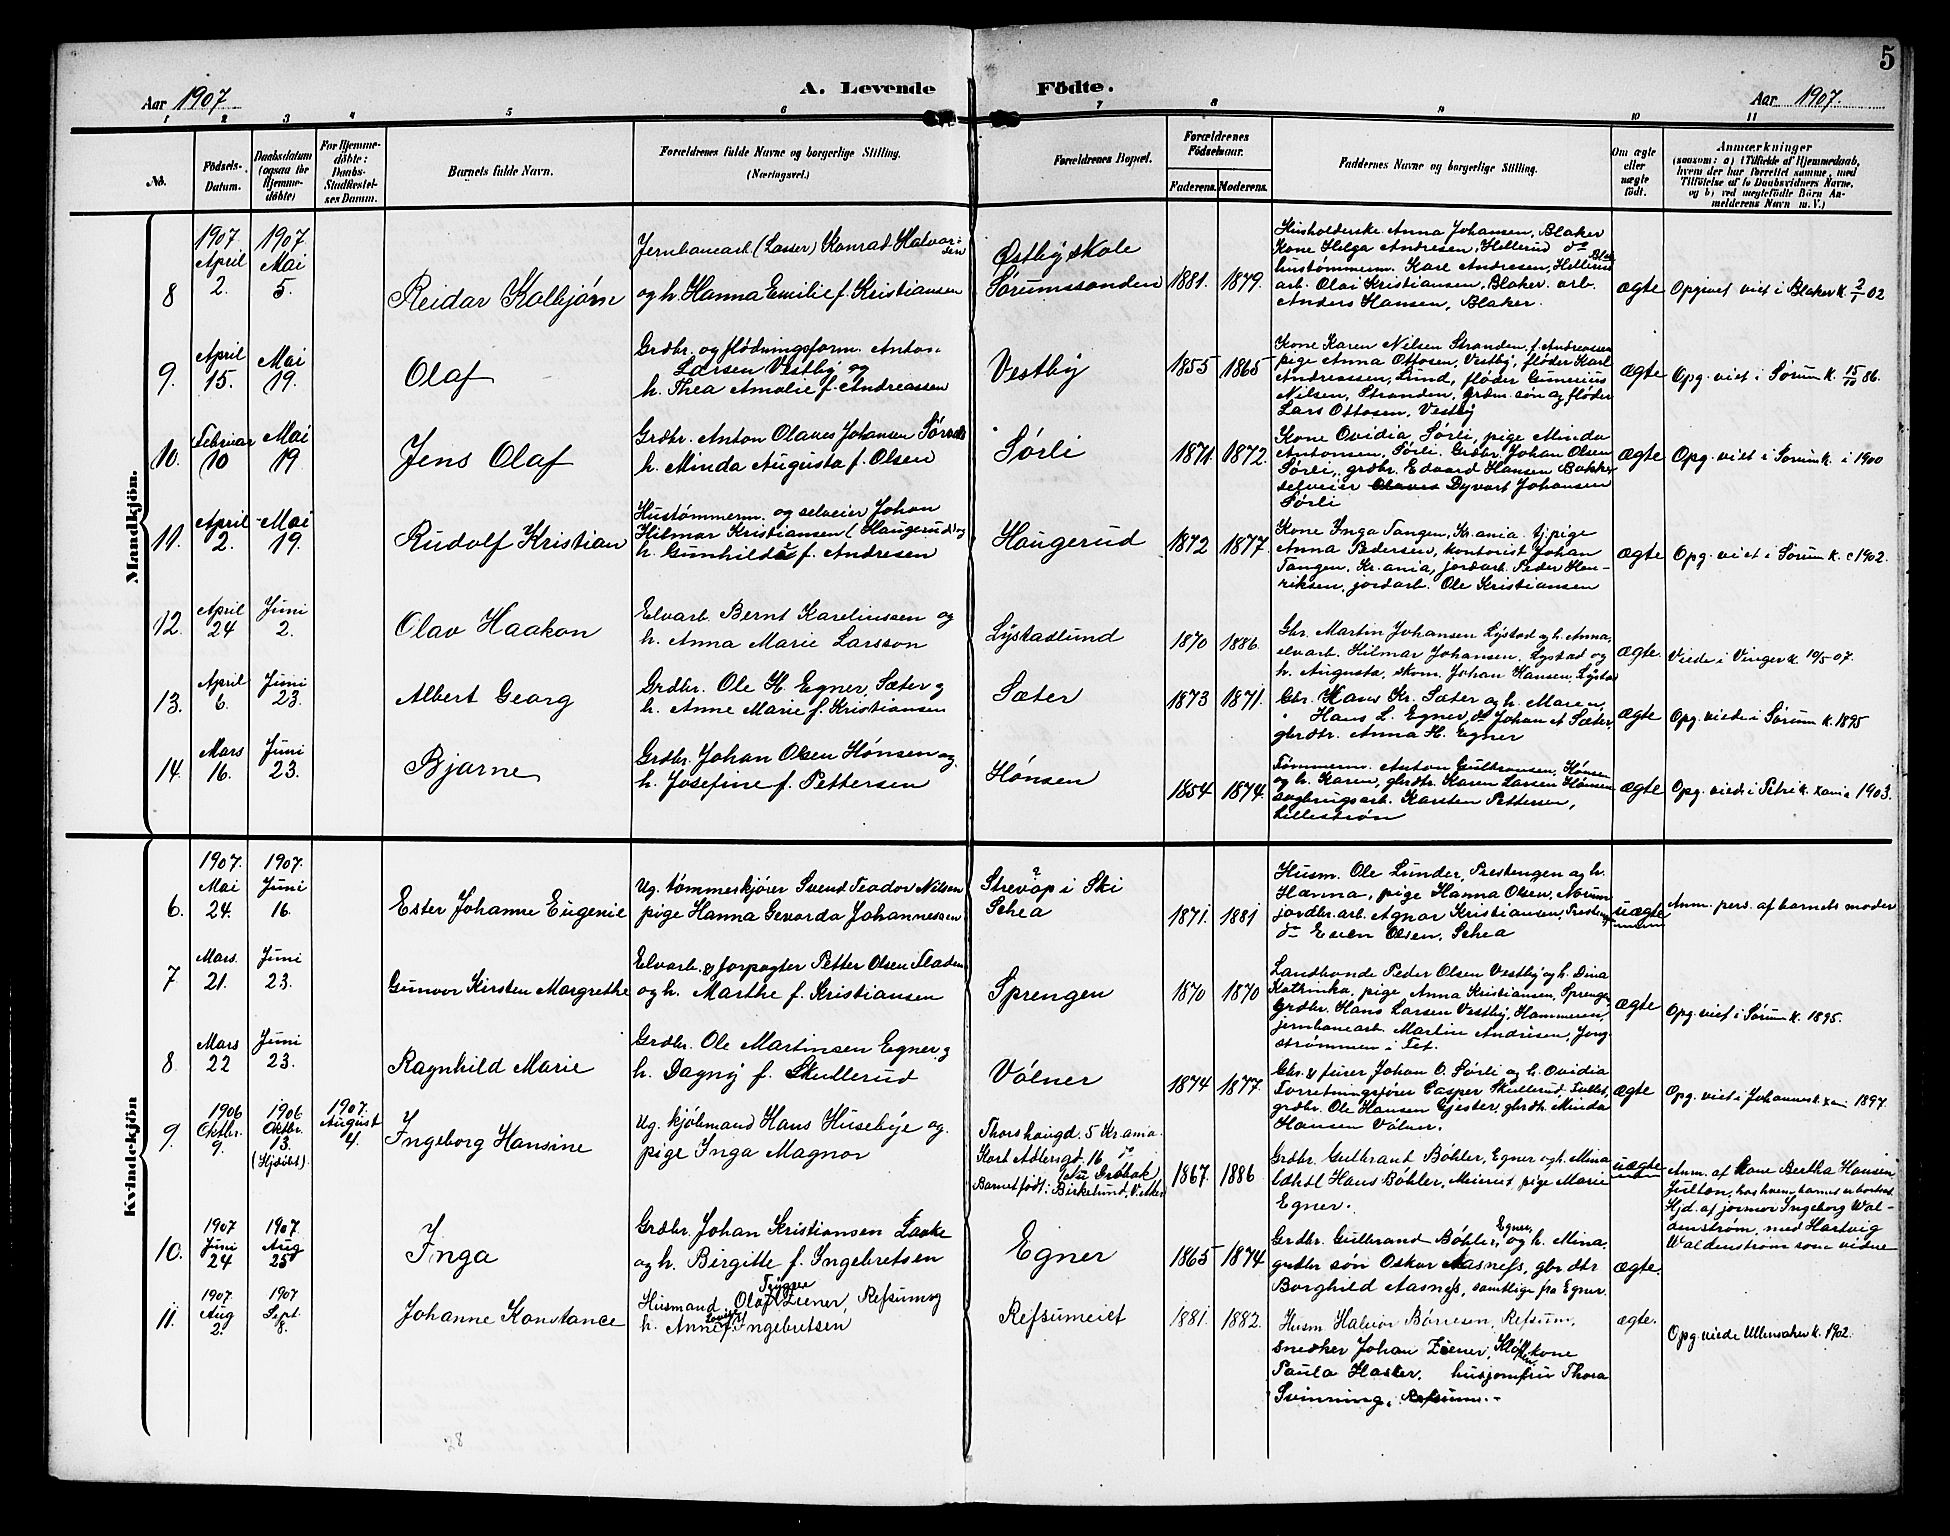 5
Aar 1907
A. Levende
Födte.
Aar 1907.
1 2 3 4 5 6 7 8 9 10 11
No.
Födsels-
Datum.
Daabsdatum
(ogsaa for
Hjemme-
döbte)
For Hjemme-
döbte:
Daabs-
Stadfæstel-
ses Datum.
Barnets fulde Navn.
Forældrenes fulde Navne og borgerlige Stilling.
(Næringsvei.)
Forældrenes Bopæl.
Forældrenes
Födselsaar.
Faderens. Moderens.
Faddernes Navne og borgerlige Stilling.
Om ægte
eller
uægte
födt.
Anmærkninger
(saasom: a) i Tilfælde af Hjemmedaab,
hvem der har forrettet samme, med
Tilföielse af to Daabsvidners Navne,
og b) ved uegtefödte Börn An-
melderens Navn m. V.)
Mandkjön.
8
1907.
April
2.
1907.
Mai
5.
Reidar Kolbjørn
Jernbanearb. (Laster) Konrad Halvor-
sen
og h. Hanna Emilie f. Kristiansen
Østby skole
Sørumssanden
1881. 1879.
Husholderske Anna Johansen, Blaker
Kone Helga Andresen, Hellerud do
hustømmerm. Karl Andresen, Hellerud
arb. Olai Kristiansen, Blaker. arb.
Anders Hansen, Blaker.
ægte
Opgivet viet i Blaker k. 2/1 02
9.
April
15.
Mai
19.
Olaf
Grdbr. og flødningsform. Anton
Larsen Vestby og
h. Thea Amalie f. Andreassen
Vestby
1855 1865
Kone Karen Nilsen Stranden, f. Andreassen
pige Anna Ottosen, Vestby, fløder Karl
Andreassen, Lund, fløder Gunerius
Nilsen, Stranden, grdm. søn og fløder
Lars Ottosen, Vestby
ægte
Opg. viet i Sørum k. 15/10 86.
10.
Februar
10
Mai
19
Jens Olaf
Grdbr. Anton Olaves Johansen
h. Minda Augusta f. Olsen
Sørli
1871. 1872.
Kone Ovidia Sørli, pige Minda
Antonsen, Sørli. Grdbr. Johan Olsen
Sørli, grdbr. Edvard Hansen Bakke
selveier Olaves Dyvart Johansen
Sørli
ægte
Opg. viet i Sørum k. i 1900
11.
April
2.
Mai
19.
Rudolf Kristian
Hustømmerm. og selveier Johan
Hilmar Kristiansen (Haugerud) og
h. Gunhilda f. Andresen
Haugerud
1872 1877.
Kone Inga Tangen, Kr.ania. tj.pige
Anna Pedersen, kontorist Johan
Tangen, Kr.ania, jordarb. Peder Hen-
riksen, jordarb. Ole Kristiansen
ægte
Opg. viet i Sørum k. c 1902.
12.
April
24
Juni
2.
Olav Haakon
Elvarb. Bernt Karelinssen og
h. Anna Marie Larsson
Lystadlund
1870 1886.
Gbr. Martin Johansen Lystad og h. Anna,
elvarb. Hilmar Johansen, Lystad og
h. Augusta, skom. Johan Hansen, Lystad
ægte.
Viede i Vinger k. 10/5 07.
13.
April
6.
Juni
23.
Albert Georg
Grdbr. Ole H. Egner, Sæter og
h. Anne Marie f. Kristiansen
Sæter
1873 1871.
Gbr. Hans Kr. Sæter og h. Maren,
Hans L. Egner, do Johan A Sæter,
gbrdtr. Anna H. Egner
ægte
Opg. viede i Sørum k. 1895
14.
Mars
16.
Juni
23.
Bjarne
Grdbr. Johan Olsen Hønsen og
h. Josefine f. Pettersen
Hønsen
1854 1874.
Tømmerm. Anton Gulbransen, Hønsen
og h. Karen, gbrdtr. Karen Larsen Hønsen
sagbrugsarb. Karsten Pettersen,
Lillestrøm
ægte
Opg. viede i Petri k. Xania 1903.
Kvindekjön
6.
1907.
Mai
24.
1907.
Juni
16.
Ester Johanne Eugenie
Ug. tømmerkjører Svend Teodor Nilsen
pige Hanna Gevorda Johannessen
Strevop i Ski
Schea
1871. 1881
Husm. Ole Lunder, Prestengen og h.
Hanna, pige Hanna Olsen, Norum
jordbr.arb. Agnar Kristiansen,
do Even Olsen, Schea
uægte
Anm. pers. af barnets moder
7
Mars.
21.
Juni
23.
Gunvor Kirsten Margrethe
Elvarb. & forpagter Petter Olsen Fladen
og h. Marthe f. Kristiansen
Sprengen
1870 1870
Landhandl. Peder Olsen Vestby og h. Dina
Katrinka, pige Anna Kristiansen, Sprengen
Grdbr. Hans Larsen Vestby, Hammeren,
jernbanearb. Martin Andresen, Jong
strømmen i Fet.
ægte
Opg. viet i Sørum k. 1895.
8.
Mars
22
Juni
23.
Ragnhild Marie
Grdbr. Ole Martinsen Egner, og
h. Dagny f. Skullerud
Vølner
1874 1877.
Gbr. & furer Johan O. Sørli og h. Ovidia
Forretningsfører Casper Skullerud,
grdbr. Ole Hansen Gjester, gbrdtr. Minda
Hansen Vølner.
ægte
Opg. viet i Johannes k. Xania 1897.
9.
1906
Oktbr.
9.
1906
Oktbr.
13.
(Hjdøbt).
1907.
August
4.
Ingeborg Hansine
Ug. kjølmand Hans Husebye og
pige Inga Magnor
Thorshaugd. 5 Kr.ania.
Kort Adlersgd. 16 do
Barnet født: Birkelund,
1867. 1886
Grdbr. Gulbrant Bøhler, Egner og h. Mina
Hans Bøhler, pige Marie
Egner.
uægte
Anm. af Kone Bertha Hansen
Jultøn, hos hvem barnet er bortsat
Hjd. af jormor Ingeborg Wal-
denstrøm, med Hartvig
Waldenstrøm som vidne
10.
1907
Juni
24
1907.
Aug
25
Inga
Grdbr. Johan Kristiansen Laake
og h. Birgitte f. Ingebretsen
Egner
1865 1874
Grdbr. Gulbrand Bøhler, Egner, og h. Mina,
gmbr søn Oskar Aasnæss, gbr dtr
Borghild Aasnæss, samtlige fra Egner.
ægte.
11.
1907.
Aug
2.
1907
Sept.
8.
Johanne Konstance
Husmand Olaf Trygve Ziener, Refsum og
h. Anne Lovise f. Ingebretsen
Refsumeiet
1881. 1882.
Husm Halvor Børresen, Refsum,
Snedker Johan Ziener, Kløften kone
Paula Hasler. husjomfru Thora
Svinning, Refsum.-
ægte.
Opg. viede Ullensaker k. 1902.
28